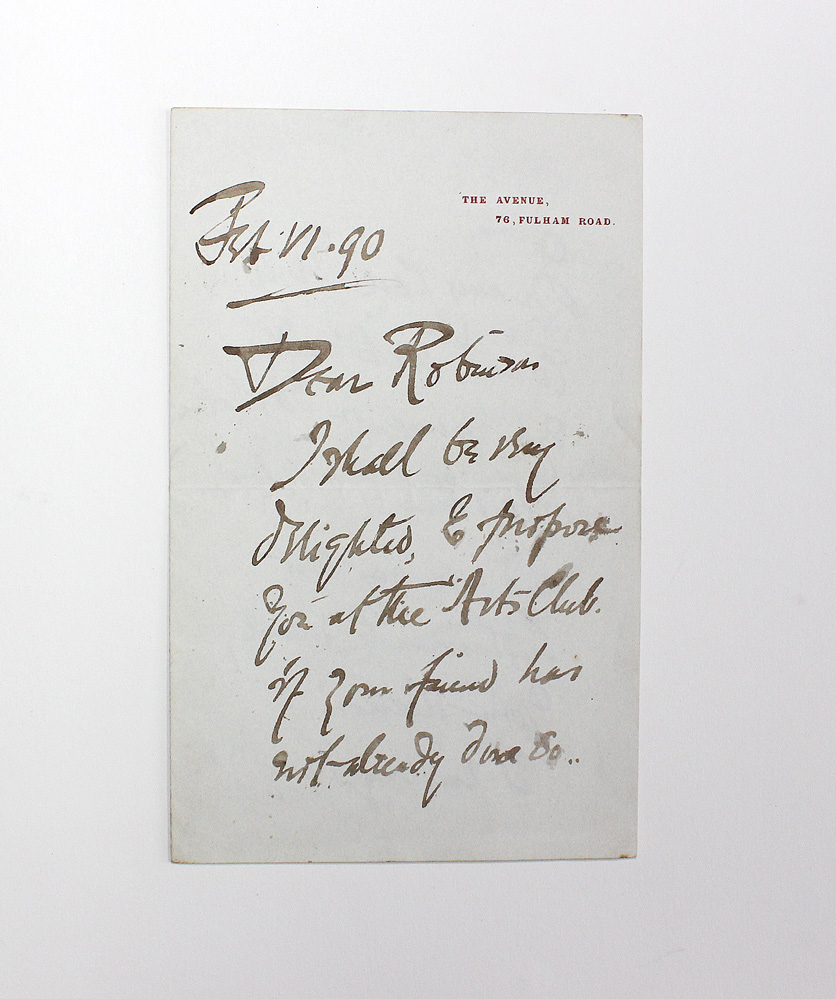 THE AVENUE,
76, FULHAM ROAD.
Feb. VI. 90
Dear Robinson
I shall be very
delighted, to propose
you at the Arts Club.
if your friend has
not already done so..